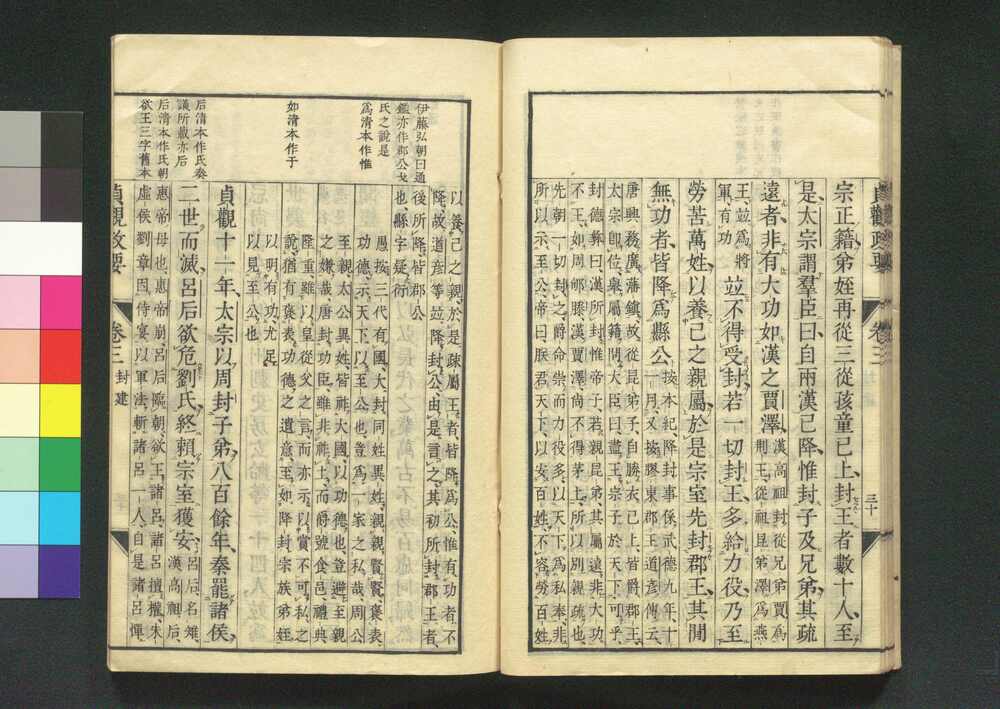 貞觀政要
卷三
三十
宗正籍弟姪再從三從孩童已上封王者數十人至
是太宗謂羣臣曰自兩漢已降惟封子及兄弟其疏
遠者非有大功如漢之賈澤漢高祖封從兄弟賈爲
荆王從祖昆弟澤爲燕
王竝爲將
軍有功竝不得受封若一切封王多給力役乃至
勞苦萬姓以養己之親屬於是宗室先封郡王其間
無功者皆降爲縣公按本紀降封事係武德九年十
一月又按膠東郡王道彥傳云
唐興務廣藩鎭故從昆弟子自勝衣已上皆爵郡王
太宗卽位舉屬籍問大臣曰盡王宗子於天下可乎
封德彝曰漢所封惟帝子若親昆弟其屬遠非大功
不王如周郇滕漢賈澤尙不得茅土所以別親疏也
先朝一切封之爵命崇而力役多以天下爲私奉非
所以示至公帝曰朕君天下以安百姓不容勞百姓
以養己之親於是疎屬王者皆降爲公惟有功者不
降故道彥等竝降封公由是言之其初所封郡王者
後所降皆郡公
也縣字疑衍
愚按三代有國大封同姓異姓親親賢賢褒表
功德示天下以至公也豈爲一家之私哉周公
至親太公異姓皆祚大國以功德也豈避至親
之嫌哉唐封功臣雖非祚土而爵號食邑禮典
隆重雖以皇從父之言而亦示以賞不可私之
說猶有褒表功德之遺意至如降封宗族弟姪
以明有功尤足
以見至公也
貞觀十一年太宗以周封子弟八百餘年秦罷諸侯
二世而滅呂后欲危劉氏終賴宗室獲安呂后名雉
漢高祖后
惠帝母也惠帝崩呂后臨朝欲王諸呂諸呂擅權朱
虛侯劉章因侍宴以軍法斬諸呂一人自是諸呂憚
貞觀政要
卷三
封建
伊藤弘朝曰通
鑑亦作郡公戈
氏之說是
爲淸本作惟
如淸本作于
后淸本作氏奏
議所載亦后
后淸本作氏朝
欲王三字舊本